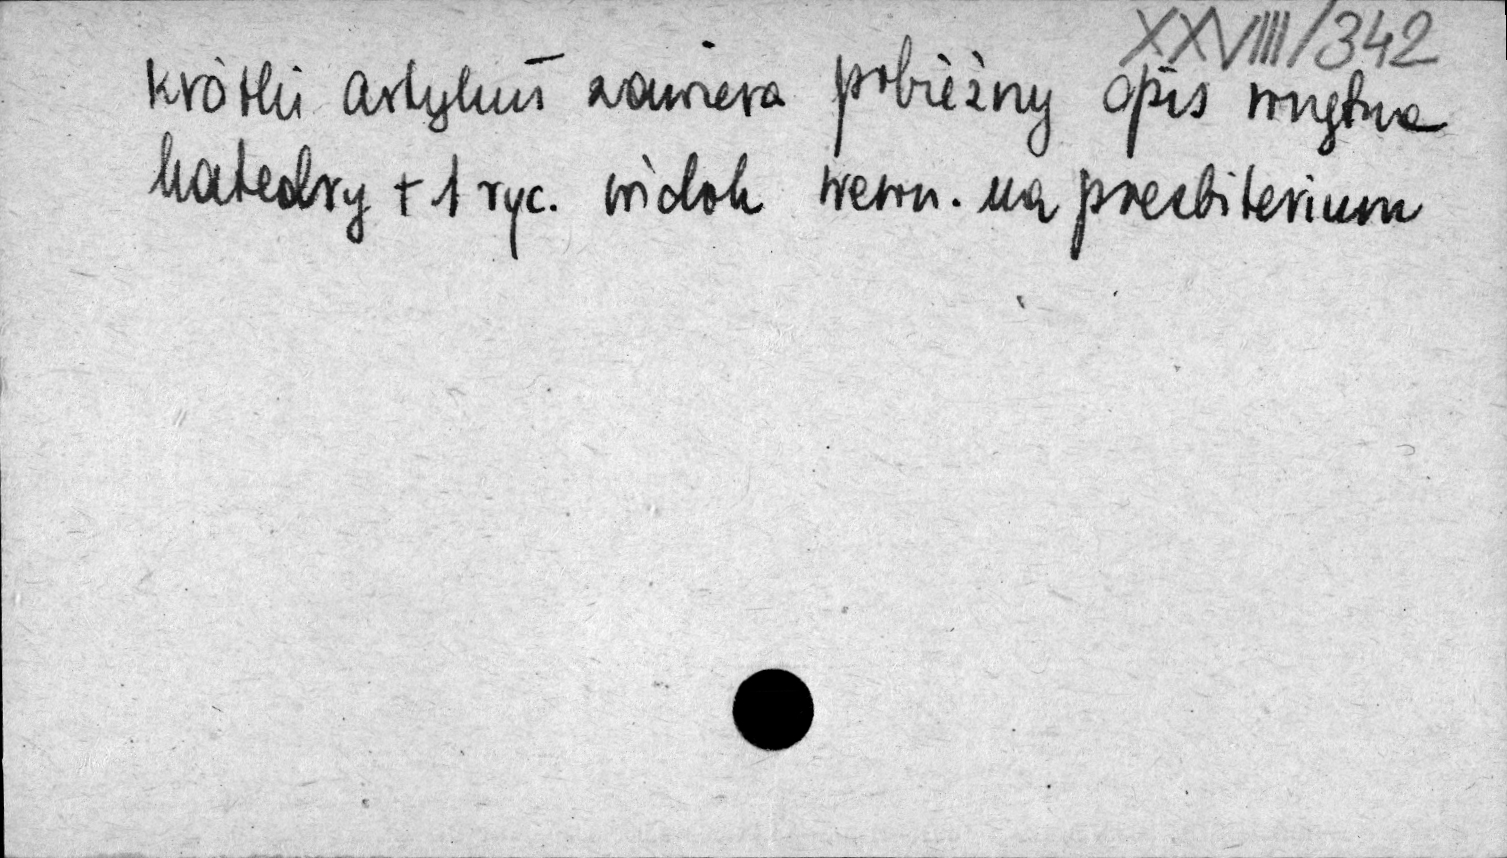 XXVIIII/342
krótki artykuł zawiera pobieżny opis wnętrza
katedry + 1 ryc. widok wewn. na prezbiterium